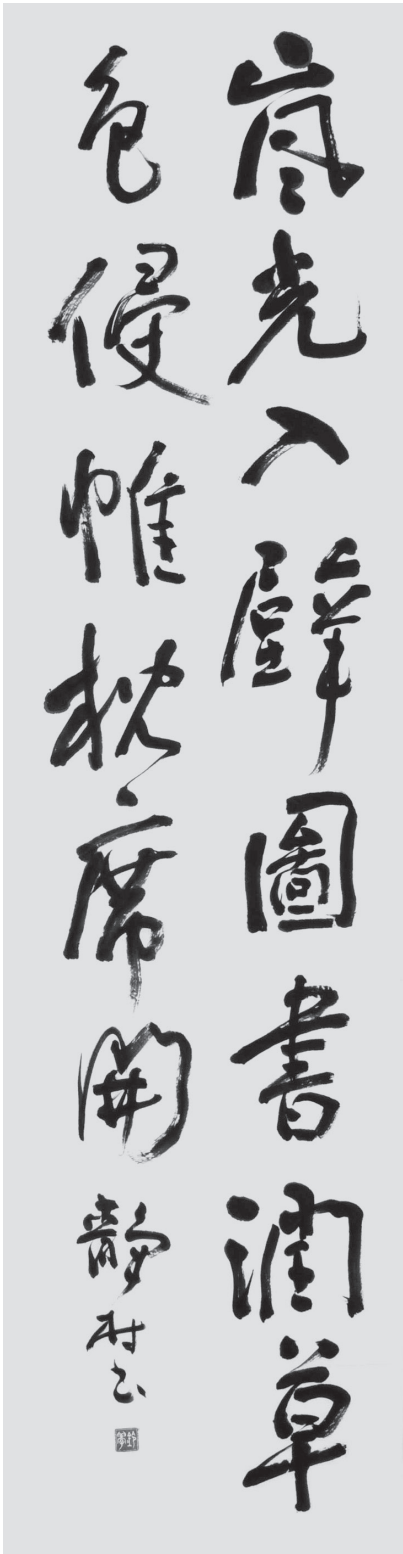 嵐光入壁圖書潤草
色侵帷枕席開
静村書